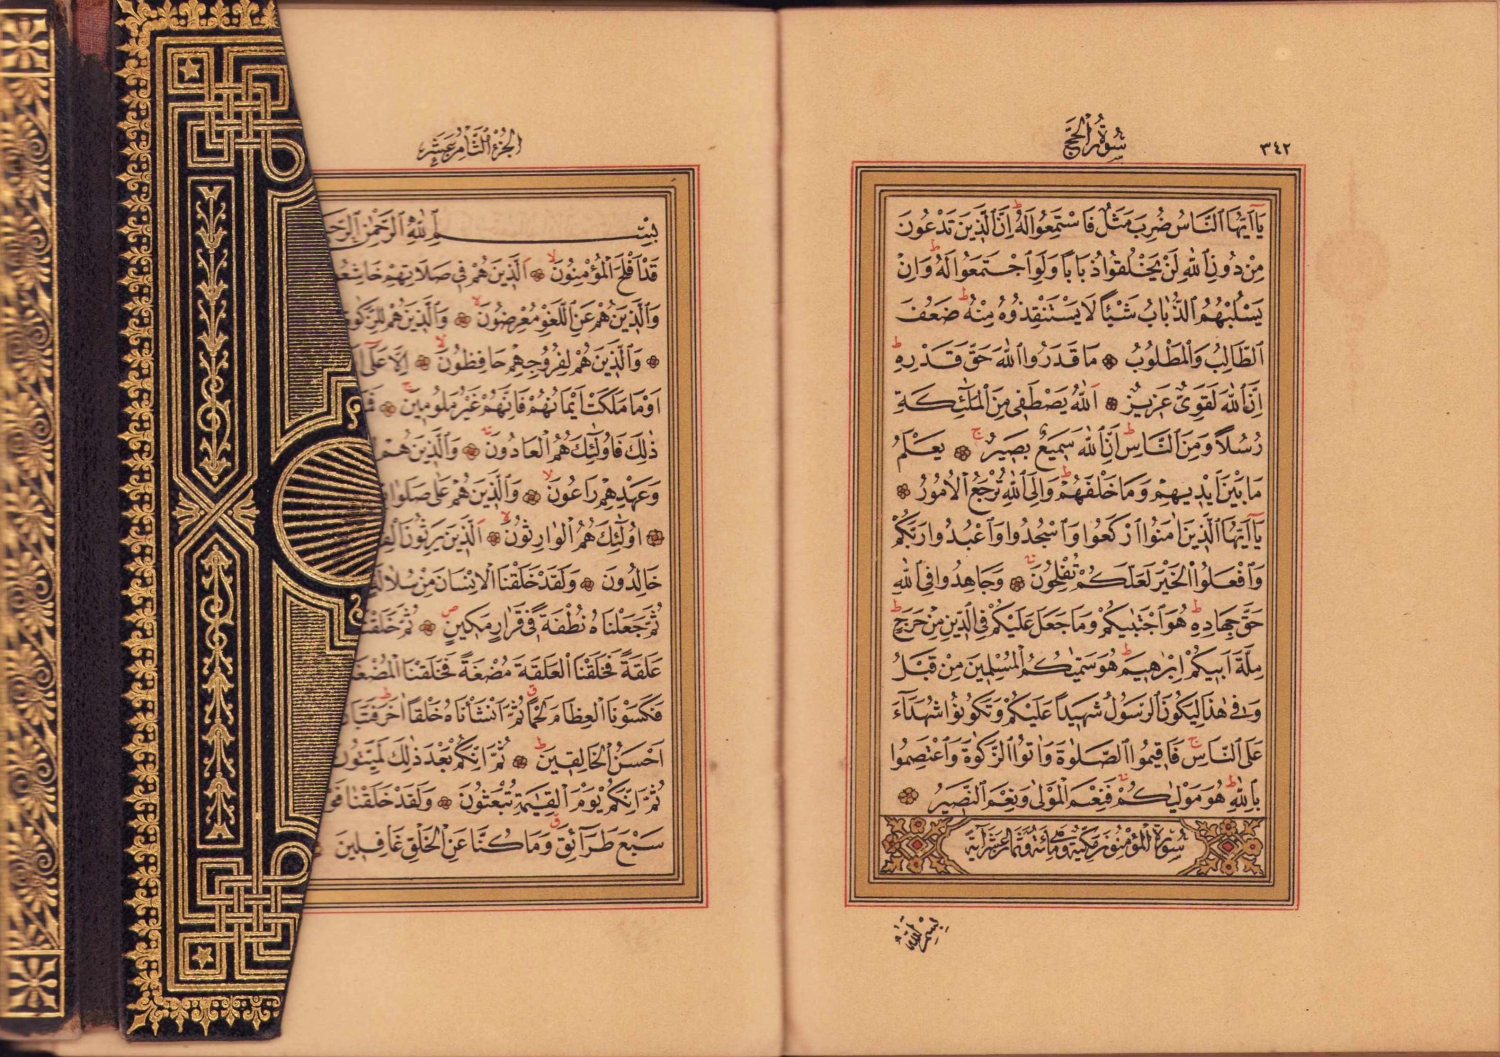 ٣٤٢
سُورَةُ الْحَجِّ
يَاۤ اَيُّهَا النَّاسُ ضُرِبَ مَثَلٌ فَاسْتَمِعُوا لَهُ ط اِنَّ الَّذِينَ تَدْعُونَ
مِنْ دُونِ اللّٰهِ لَنْ يَخْلُقُوا ذُبَاباً وَلَوِ اجْتَمَعُوا لَهُ ط وَاِنْ
يَسْلُبْهُمُ الذُّبَابُ شَيْئاً لَا يَسْتَنْقِذُوهُ مِنْهُ ط ضَعُفَ
الطَّالِبُ وَالْمَطْلُوبُ ۞ مَا قَدَرُوا اللّٰهَ حَقَّ قَدْرِهِ ط
اِنَّ اللّٰهَ لَقَوِيٌّ عَزِيزٌ ۞ اَللّٰهُ يَصْطَفِى مِنَ الْمَلٰۤئِكَةِ
رُسُلاً وَمِنَ النَّاسِ ط اِنَّ اللّٰهَ سَمِيعٌ بَصِيرٌ ج ۞ يَعْلَمُ
مَا بَيْنَ اَيْدِيهِمْ وَمَا خَلْفَهُمْ ط وَاِلَى اللّٰهِ تُرْجَعُ الْاُمُورُ ۞
يَاۤ اَيُّهَا الَّذِينَ اٰمَنُوا ارْكَعُوا وَاسْجُدُوا وَاعْبُدُوا رَبَّكُمْ
وَافْعَلُوا الْخَيْرَ لَعَلَّكُمْ تُفْلِحُونَ ۞ وَجَاهِدُوا فِى اللّٰهِ
حَقَّ جِهَادِهِ ط هُوَ اجْتَبٰيكُمْ وَمَا جَعَلَ عَلَيْكُمْ فِى الدِّينِ مِنْ حَرَجٍ ط
مِلَّةَ اَبِيكُمْ اِبْرٰهِيمَ ط هُوَ سَمّٰيكُمُ الْمُسْلِمِينَ مِنْ قَبْلُ
وَفِى هٰذَا لِيَكُونَ الرَّسُولُ شَهِيداً عَلَيْكُمْ وَتَكُونُوا شُهَدَاۤءَ
عَلَى النَّاسِ ج فَاَقِيمُوا الصَّلٰوةَ وَاٰتُوا الزَّكٰوةَ وَاعْتَصِمُوا
بِاللّٰهِ ط هُوَ مَوْلٰيكُمْ فَنِعْمَ الْمَوْلٰى وَنِعْمَ النَّصِيرُ ۞
سُورَةُ الْمُؤْمِنُونَ مَكِّيَّةٌ وَهِىَ مِائَةٌ وَثَمَانِ عَشْرَةَ اٰيَةً
بِسْمِ اللّٰهِ
الْجُزْءُ الثَّامِنُ عَشَرَ
بِسْمِ اللّٰهِ الرَّحْمٰنِ الرَّحِ
قَدْ اَفْلَحَ الْمُؤْمِنُونَ لا ۞ اَلَّذِينَ هُمْ فِى صَلَاتِهِمْ خَاشِعُ
وَالَّذِينَ هُمْ عَنِ اللَّغْوِ مُعْرِضُونَ لا ۞ وَالَّذِينَ هُمْ لِلزَّكٰوةِ
۞ وَالَّذِينَ هُمْ لِفُرُوجِهِمْ حَافِظُونَ لا ۞ اِلَّا عَلٰۤى
اَوْ مَا مَلَكَتْ اَيْمَانُهُمْ فَاِنَّهُمْ غَيْرُ مَلُومِينَ ج ۞
ذٰلِكَ فَاُولٰۤئِكَ هُمُ الْعَادُونَ ۞ وَالَّذِينَ هُمْ
وَعَهْدِهِمْ رَاعُونَ لا ۞ وَالَّذِينَ هُمْ عَلٰى صَلَوَا
۞ اُولٰۤئِكَ هُمُ الْوَارِثُونَ لا ۞ اَلَّذِينَ يَرِثُونَ الْفِ
خَالِدُونَ ۞ وَلَقَدْ خَلَقْنَا الْاِنْسَانَ مِنْ سُلَالَ
ثُمَّ جَعَلْنَاهُ نُطْفَةً فِى قَرَارٍ مَكِينٍ ص ۞ ثُمَّ خَلَقْنَا
عَلَقَةً فَخَلَقْنَا الْعَلَقَةَ مُضْغَةً فَخَلَقْنَا الْمُضْغَ
فَكَسَوْنَا الْعِظَامَ لَحْماً ق ثُمَّ اَنْشَاْنَاهُ خَلْقاً اٰخَرَ ط فَتَبَا
اَحْسَنُ الْخَالِقِينَ ط ۞ ثُمَّ اِنَّكُمْ بَعْدَ ذٰلِكَ لَمَيِّتُونَ
ثُمَّ اِنَّكُمْ يَوْمَ الْقِيٰمَةِ تُبْعَثُونَ ۞ وَلَقَدْ خَلَقْنَا فَوْ
سَبْعَ طَرَاۤئِقَ ق وَمَا كُنَّا عَنِ الْخَلْقِ غَافِلِينَ